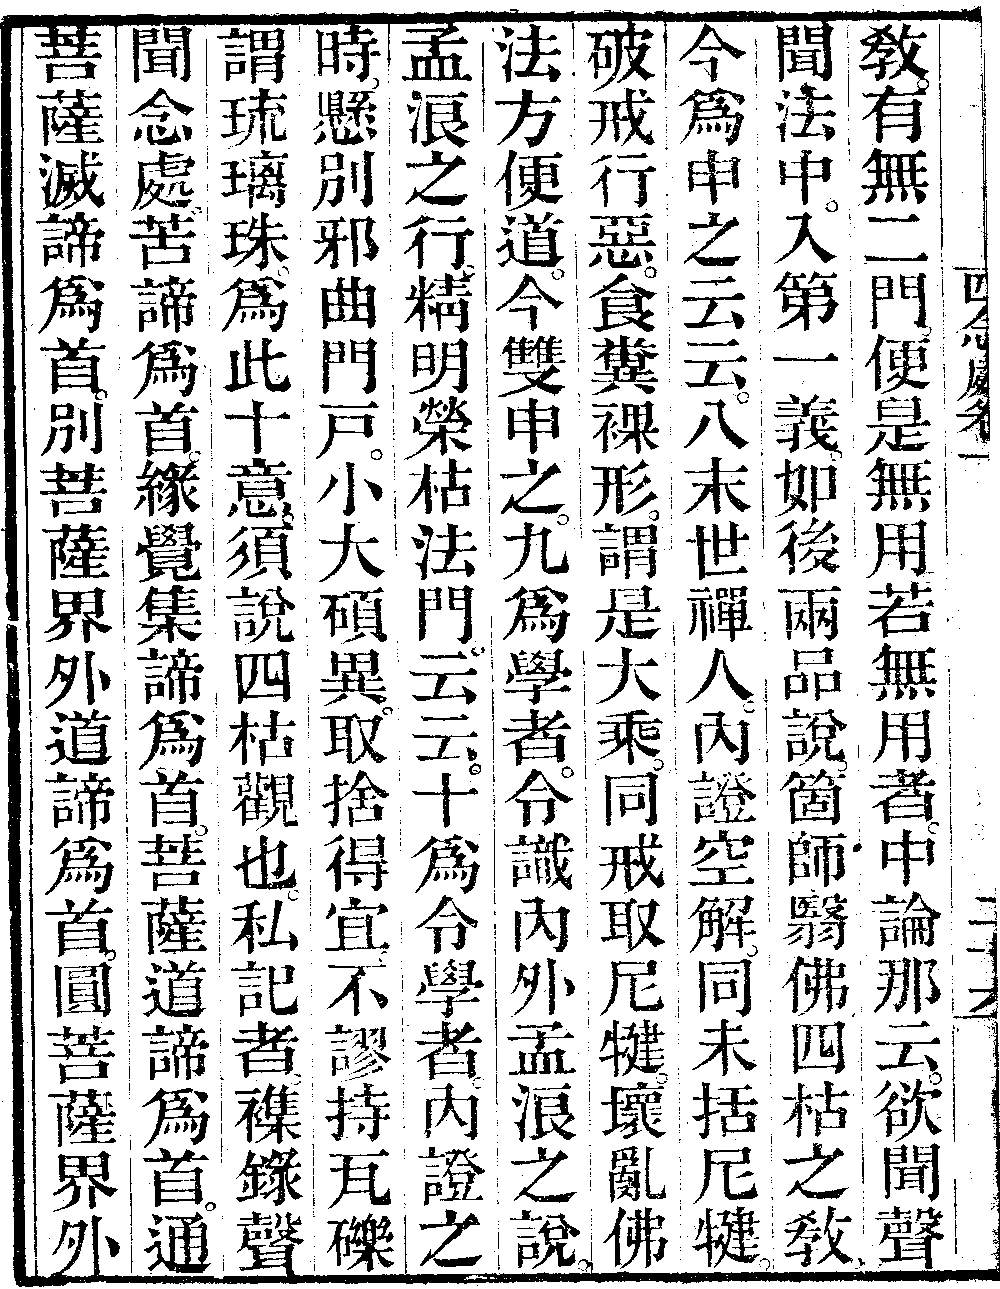 四念處卷一　二十六
敎。有無二門。便是無用若無用者。中論那云。欲聞聲
聞法中。入第一義。如後兩品說。箇師翳佛四枯之敎。
今爲申之云云。八末世禪人。內證空解。同未括尼犍。
破戒行惡。食糞裸形。謂是大乘。同戒取尼犍。壞亂佛
法方便道。今雙申之。九爲學者。令識內外孟浪之說。
孟浪之行。精明榮枯法門。云云。十爲令學者。內證之
時。懸別邪曲門戶。小大碩異。取捨得宜。不謬持瓦礫
謂琉璃珠。爲此十意。須說四枯觀也。私記者。襍錄聲
聞念處。苦諦爲首。緣覺集諦爲首。菩薩道諦爲首。通
菩薩滅諦爲首。別菩薩界外道諦爲首。圓菩薩界外